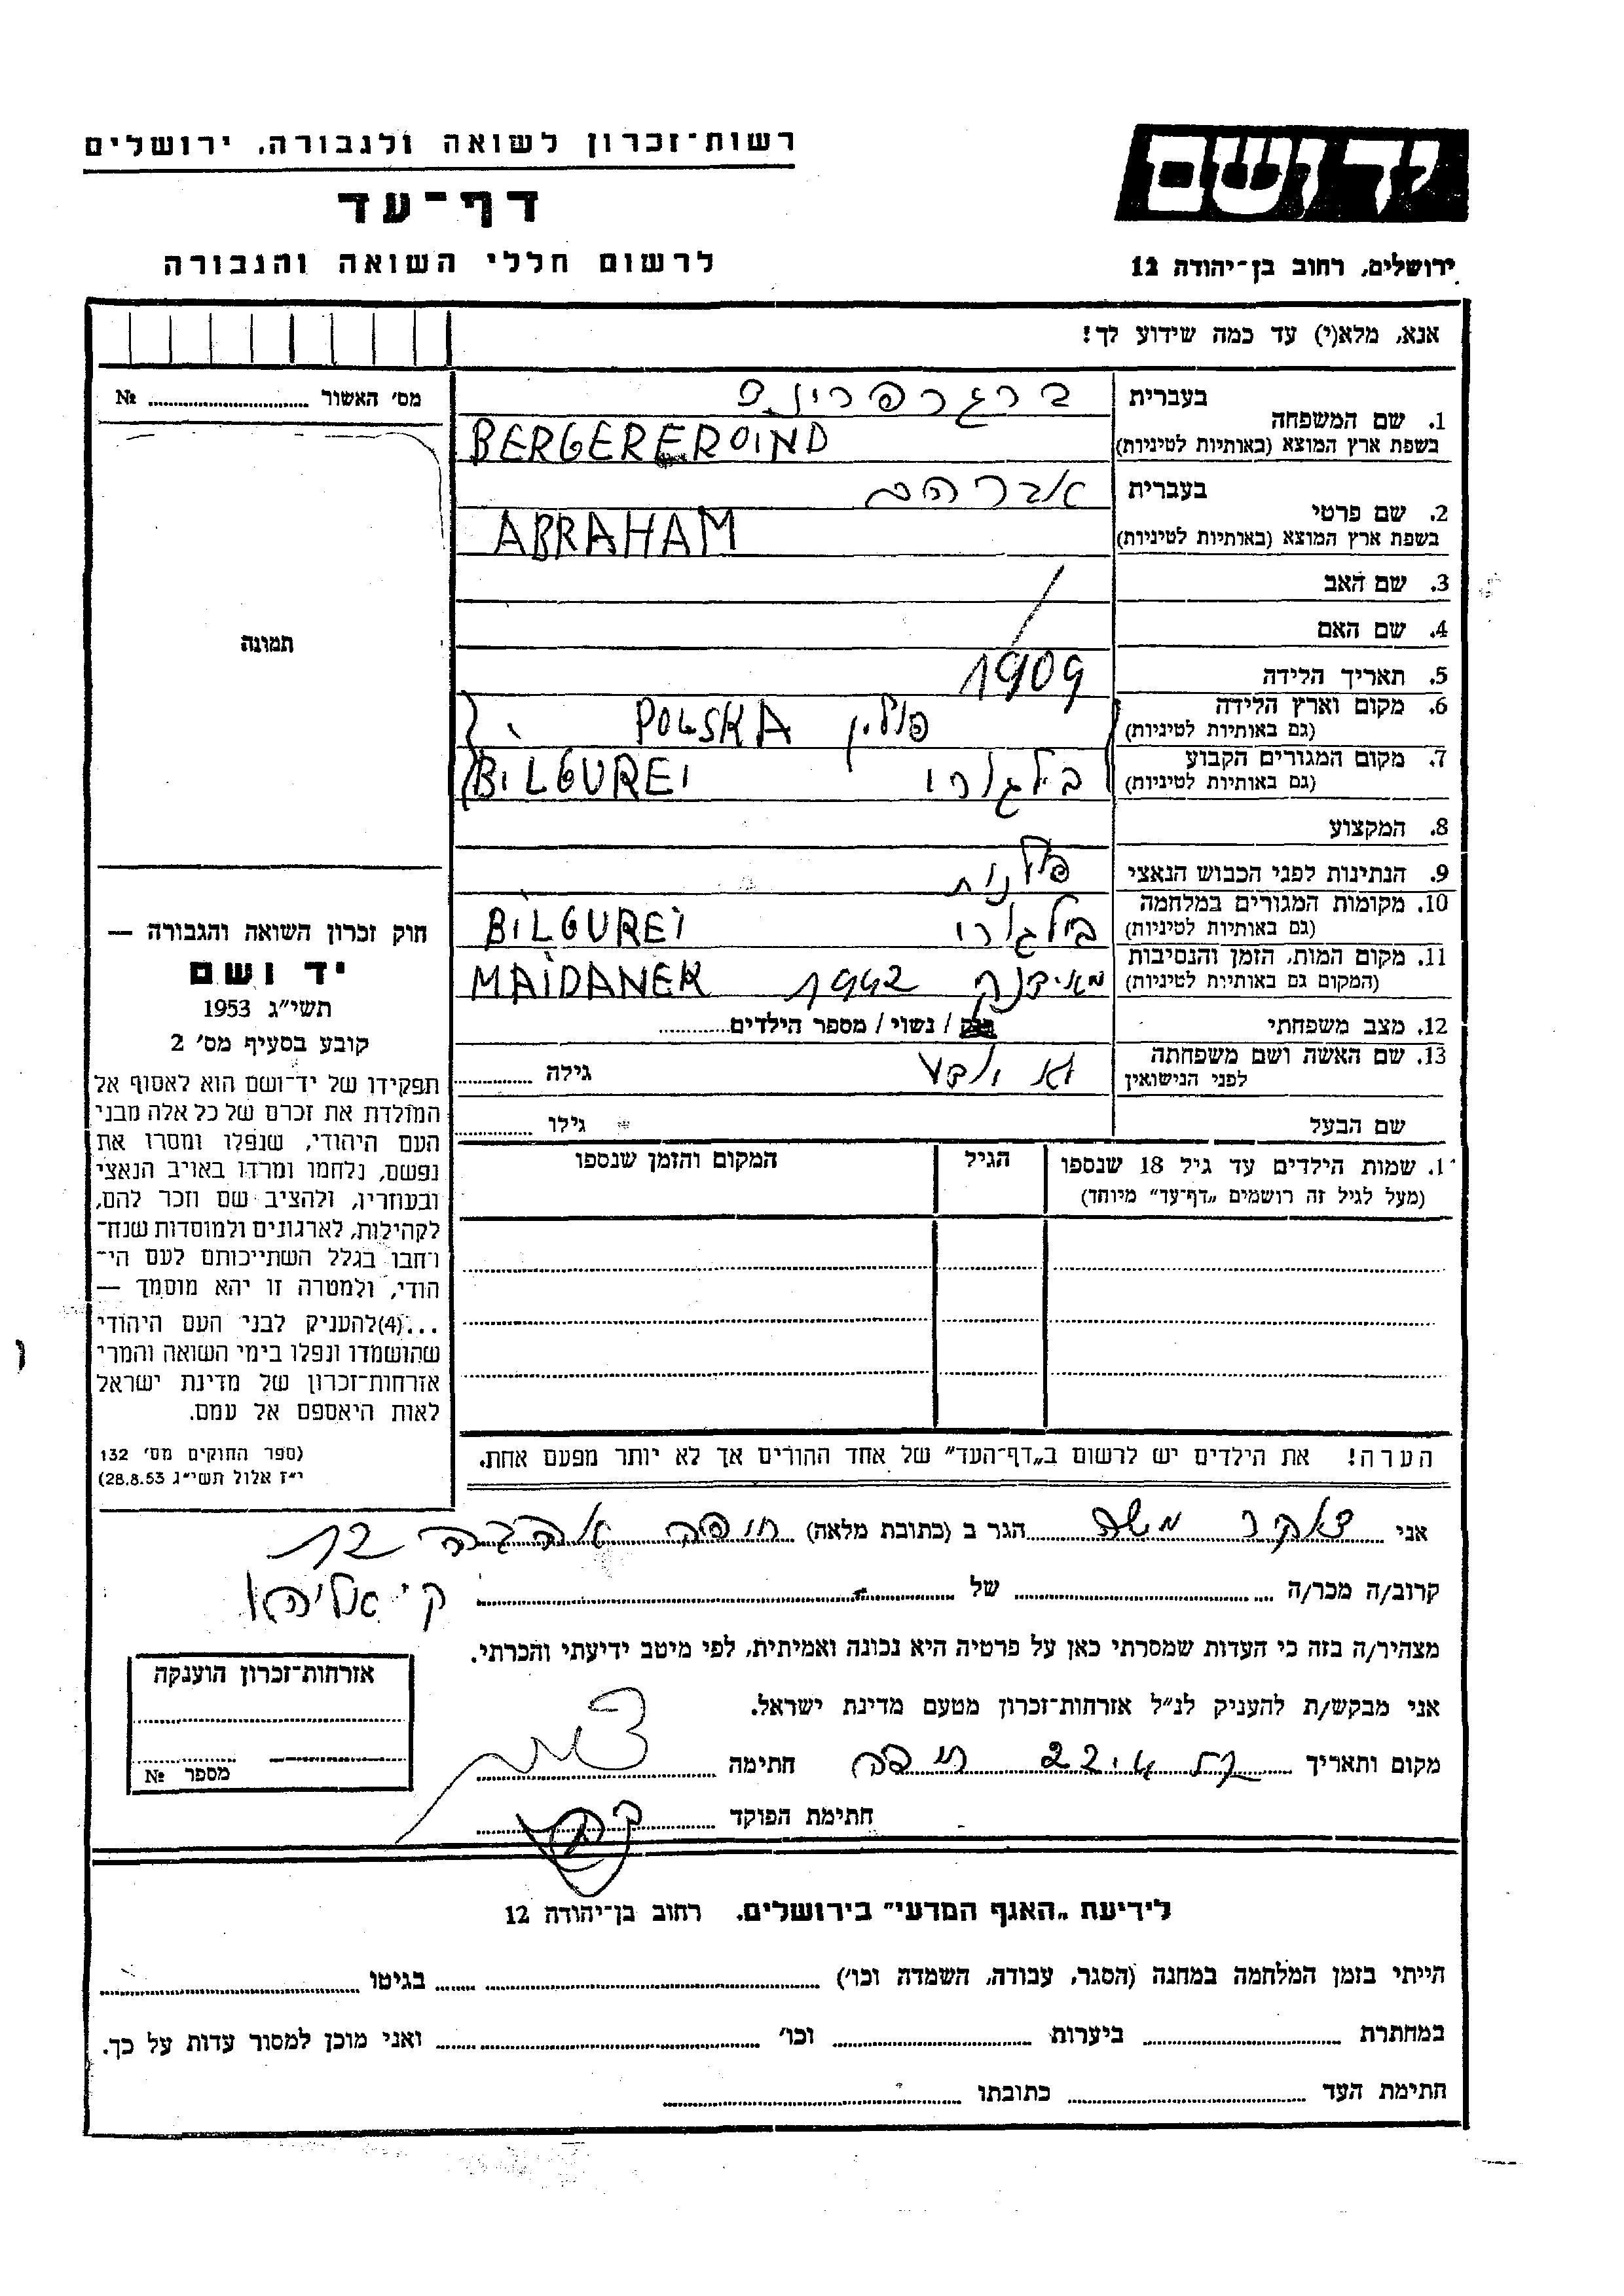 יד ושם
ירושלים, רחוב בן־יהודה 12
רשות־זכרון לשואה ולגבורה, ירושלים
דף־עד
לרשום חללי השואה והגבורה
אנא, מלא(י) עד כמה שידוע לך!
מס׳ האשור № 
תמונה
1. שם המשפחה
בעברית
בשפת ארץ המוצא (באותיות לטיניות) BERGEREROIND
2. שם פרטי
בעברית אברהם
בשפת ארץ המוצא (באותיות לטיניות) ABRAHAM
3. שם האב
4. שם האם
5. תאריך הלידה 1909
6. מקום וארץ הלידה (גם באותיות לטיניות) פולין POLSKA
7. מקום המגורים הקבוע (גם באותיות לטיניות) בילגורי BILGUREI
8. המקצוע
9. הנתינות לפני הכבוש הנאצי פולנית
10. מקומות המגורים במלחמה (גם באותיות לטיניות) בילגורי BILGUREI
11. מקום המות, הזמן והנסיבות (המקום גם באותיות לטיניות) מאידנק 1942 MAIDANEK
12. מצב משפחתי / נשוי / מספר הילדים
13. שם האשה ושם משפחתה לפני הנישואין לא ידע גילה
שם הבעל גילו
1. שמות הילדים עד גיל 18 שנספו
(מעל לגיל זה רושמים „דף־עד״ מיוחד)
הגיל
המקום והזמן שנספו
הערה! את הילדים יש לרשום ב„דף־העד״ של אחד ההורים אך לא יותר מפעם אחת.
חוק זכרון השואה והגבורה —
יד ושם
תשי״ג 1953
קובע בסעיף מס׳ 2
תפקידו של יד־ושם הוא לאסוף אל
המולדת את זכרם של כל אלה מבני
העם היהודי, שנפלו ומסרו את
נפשם, נלחמו ומרדו באויב הנאצי
ובעוזריו, ולהציב שם וזכר להם,
לקהילות, לארגונים ולמוסדות שנח־
רחבו בגלל השתייכותם לעם הי־
הודי, ולמטרה זו יהא מוסמך —
...(4)להעניק לבני העם היהודי
שהושמדו ונפלו בימי השואה והמרי
אזרחות־זכרון של מדינת ישראל
לאות היאספם אל עמם.
(ספר החוקים מס׳ 132
י״ז אלול תשי״ג 28.8.53)
אני משה הגר ב (כתובת מלאה) חיפה 12
ק׳ אליהו
קרוב/ה מכר/ה של
מצהיר/ה בזה כי העדות שמסרתי כאן על פרטיה היא נכונה ואמיתית, לפי מיטב ידיעתי והכרתי.
אני מבקש/ת להעניק לנ״ל אזרחות־זכרון מטעם מדינת ישראל.
מקום ותאריך חתימה
חתימת הפוקד
אזרחות־זכרון הוענקה
מספר №
לידיעת „האגף המדעי״ בירושלים, רחוב בן־יהודה 12
הייתי בזמן המלחמה במחנה (הסגר, עבודה, השמדה וכו׳) בגיטו
במחתרת ביערות וכו׳ ואני מוכן למסור עדות על כך.
חתימת העד כתובתו